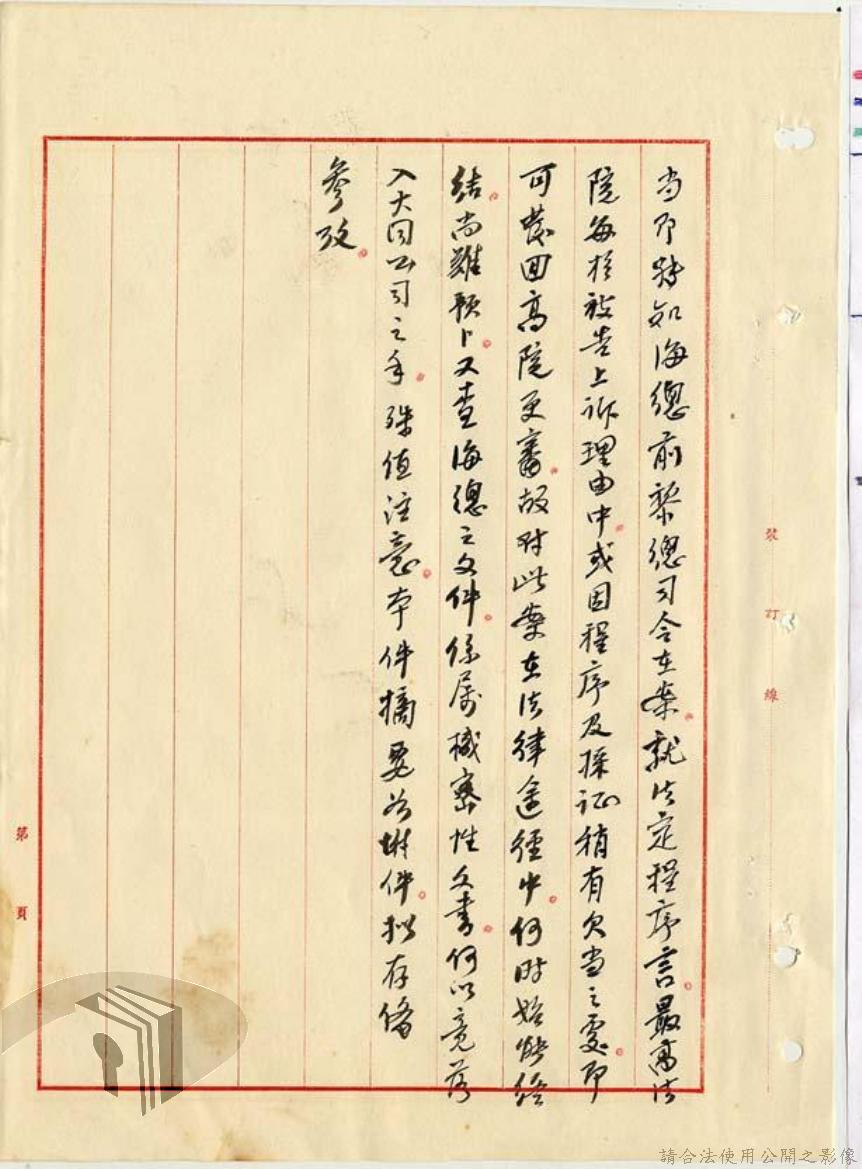 当即轉知海總前黎總司令在案。就法定程序言。最高法
院每於被告上訴理由中。或因程序及採証稍有欠當之處。即
可發回高院更審。故对此案在法律途徑中。何时始能終
結。尚難預卜。又查海總之文件。係屬機密性文書。何以竟落
入大同公司之手。殊值注意。本件摘要为附件。拟存備
參攷。
裝訂線
第 頁
請合法使用公開之影像